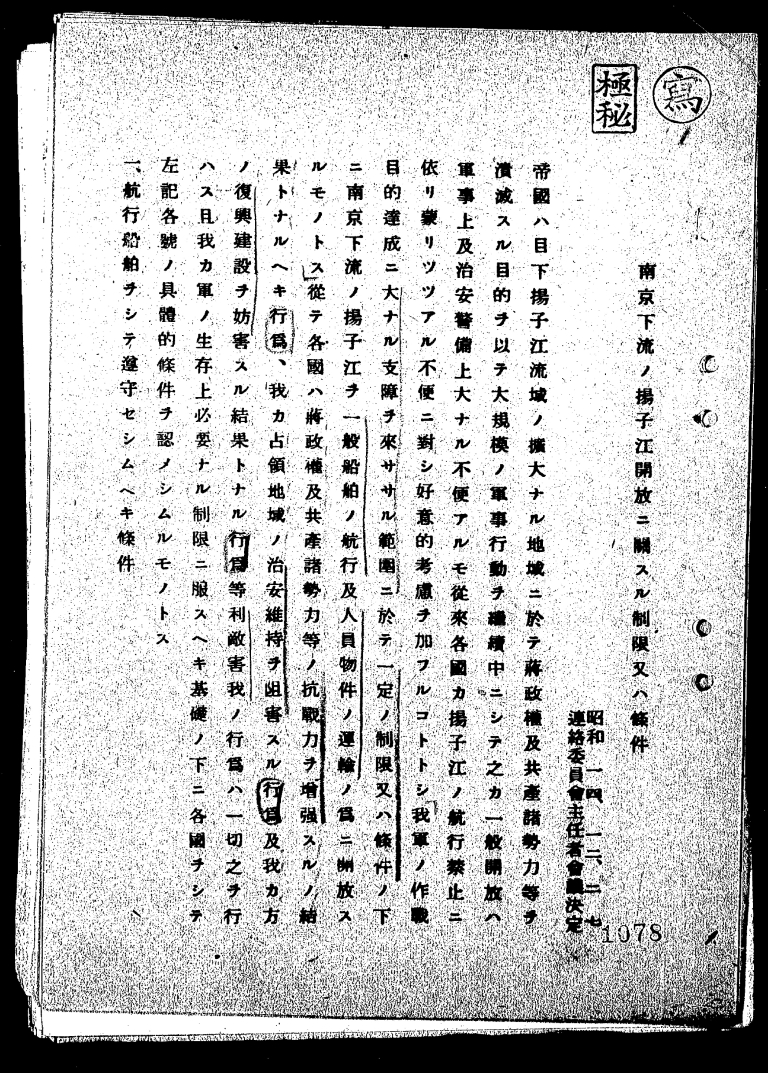 寫
極秘
南京下流ノ揚子江開放ニ關スル制限又ハ條件
昭和一四、一二、二七
連絡委員會主任者會議決定
帝國ハ目下揚子江流域ノ擴大ナル地域ニ於テ蔣政權及共產諸勢力等ヲ
潰滅スル目的ヲ以テ大規模ノ軍事行動ヲ繼續中ニシテ之カ一般開放ハ
軍事上及治安警備上大ナル不便アルモ從來各國カ揚子江ノ航行禁止ニ
依リ蒙リツツアル不便ニ對シ好意的考慮ヲ加フルコトトシ我軍ノ作戰
目的達成ニ大ナル支障ヲ來ササル範圍ニ於テ一定ノ制限又ハ條件ノ下
ニ南京下流ノ揚子江ヲ一般船舶ノ航行及人員物件ノ運輸ノ爲ニ開放ス
ルモノトス從テ各國ハ蔣政權及共產諸勢力等ノ抗戰力ヲ增强スルノ結
果トナルヘキ行爲、我カ占領地域ノ治安維持ヲ阻害スル行爲及我カ方
ノ復興建設ヲ妨害スル結果トナル行爲等利敵害我ノ行爲ハ一切之ヲ行
ハス且我カ軍ノ生存上必要ナル制限ニ服スヘキ基礎ノ下ニ各國ヲシテ
左記各號ノ具體的條件ヲ認メシムルモノトス
一、航行船舶ヲシテ遵守セシムヘキ條件
1078